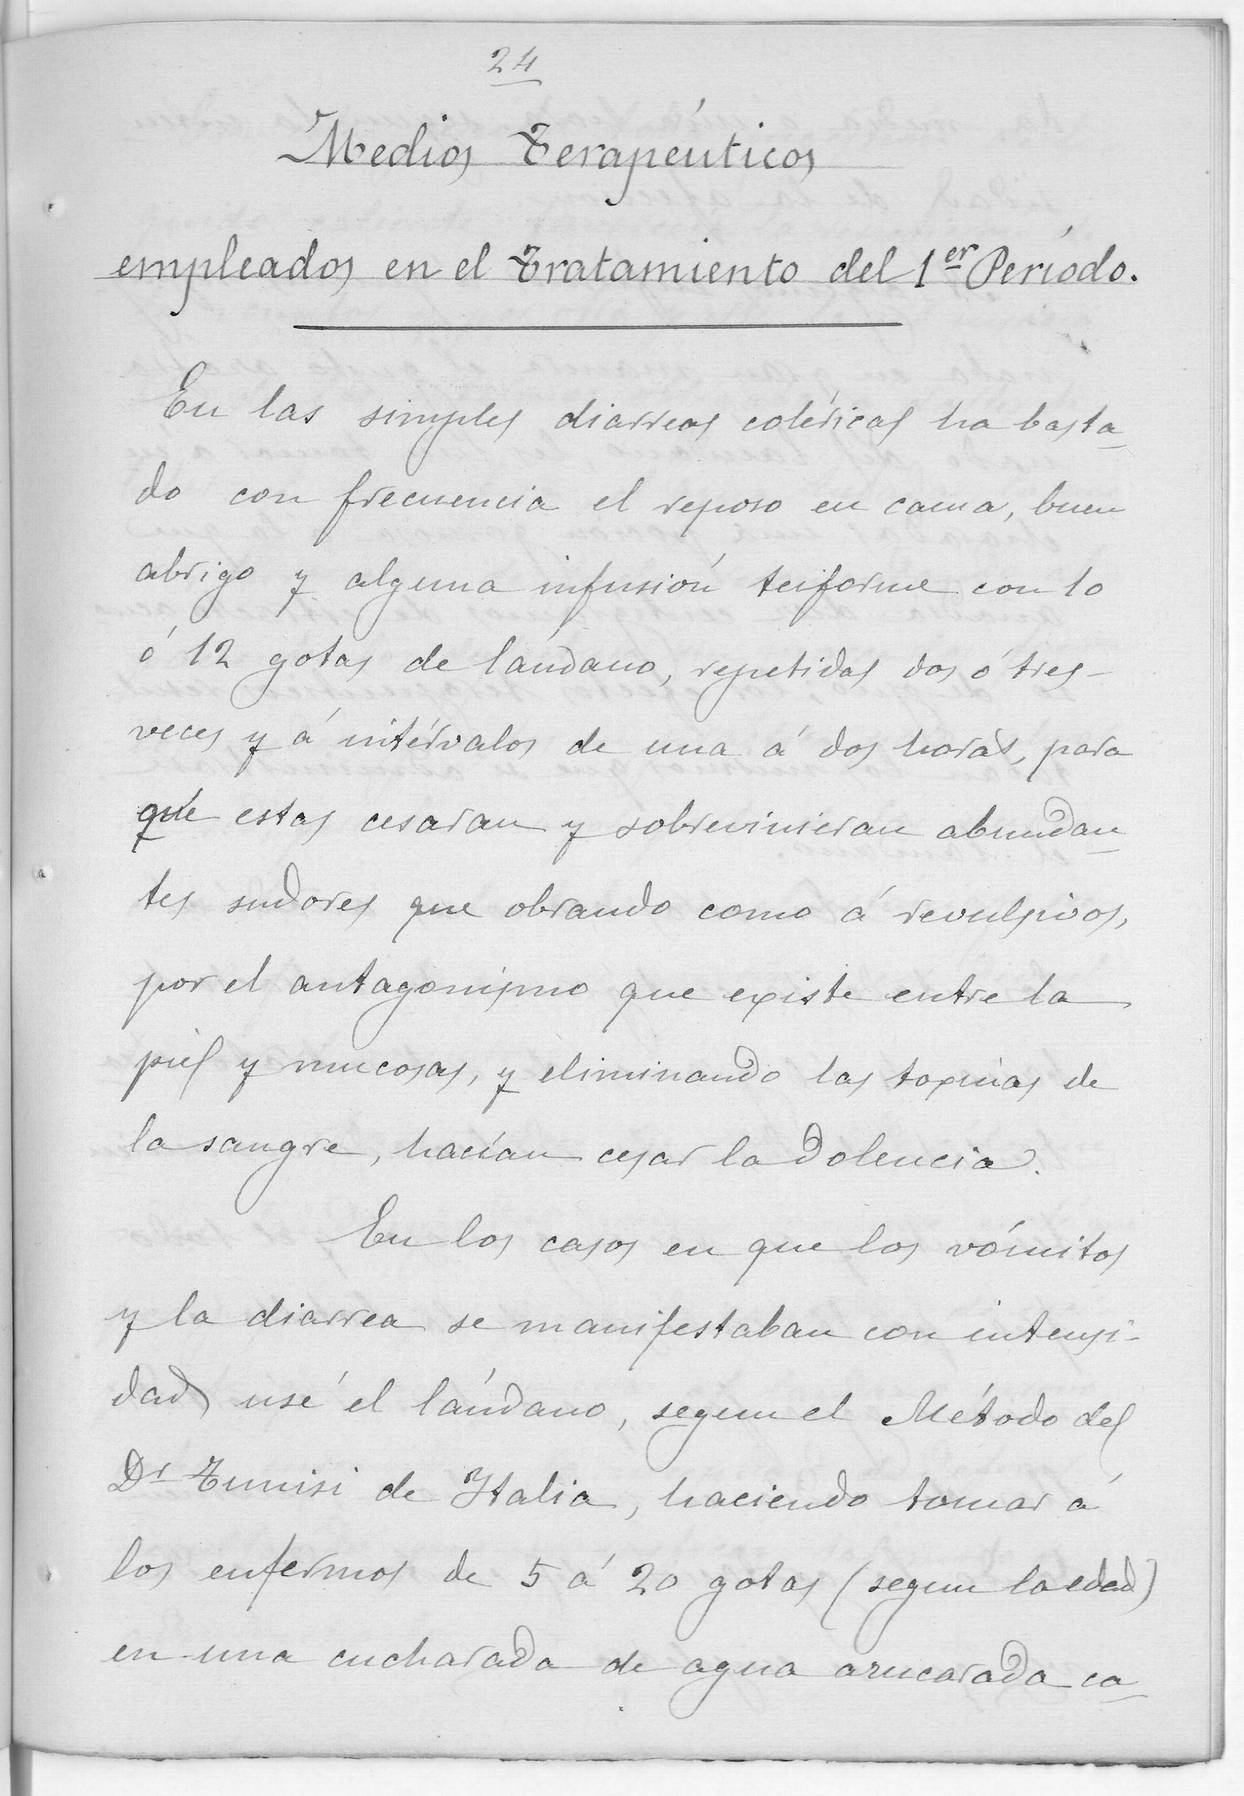 24
Medios Terapeúticos
empleados en el Tratamiento del 1er Período.
En las simples diarreas coléricas ha basta-
do con frecuencia el reposo en cama, buen
abrigo y alguna infusión teiforme con 10
ó 12 gotas de laúdano, repetidas dos ó tres
veces y á intérvalos de una á dos horas, para
que estas cesaran y sobrevinieran abundan-
tes sudores que obrando como á revulsivos,
por el antagonismo que existe entre la
piel y mucosas, y eliminando las toxinas de
la sangre, hacían cesar la dolencia.
En los casos en que los vómitos
y la diarrea se manifestaban con intensi-
dad usé el laúdano, segun el Método del
Dr Tunisi de Italia, haciendo tomar á
los enfermos de 5 á 20 gotas (segun la edad)
en una cucharada de agua azucarada ca-